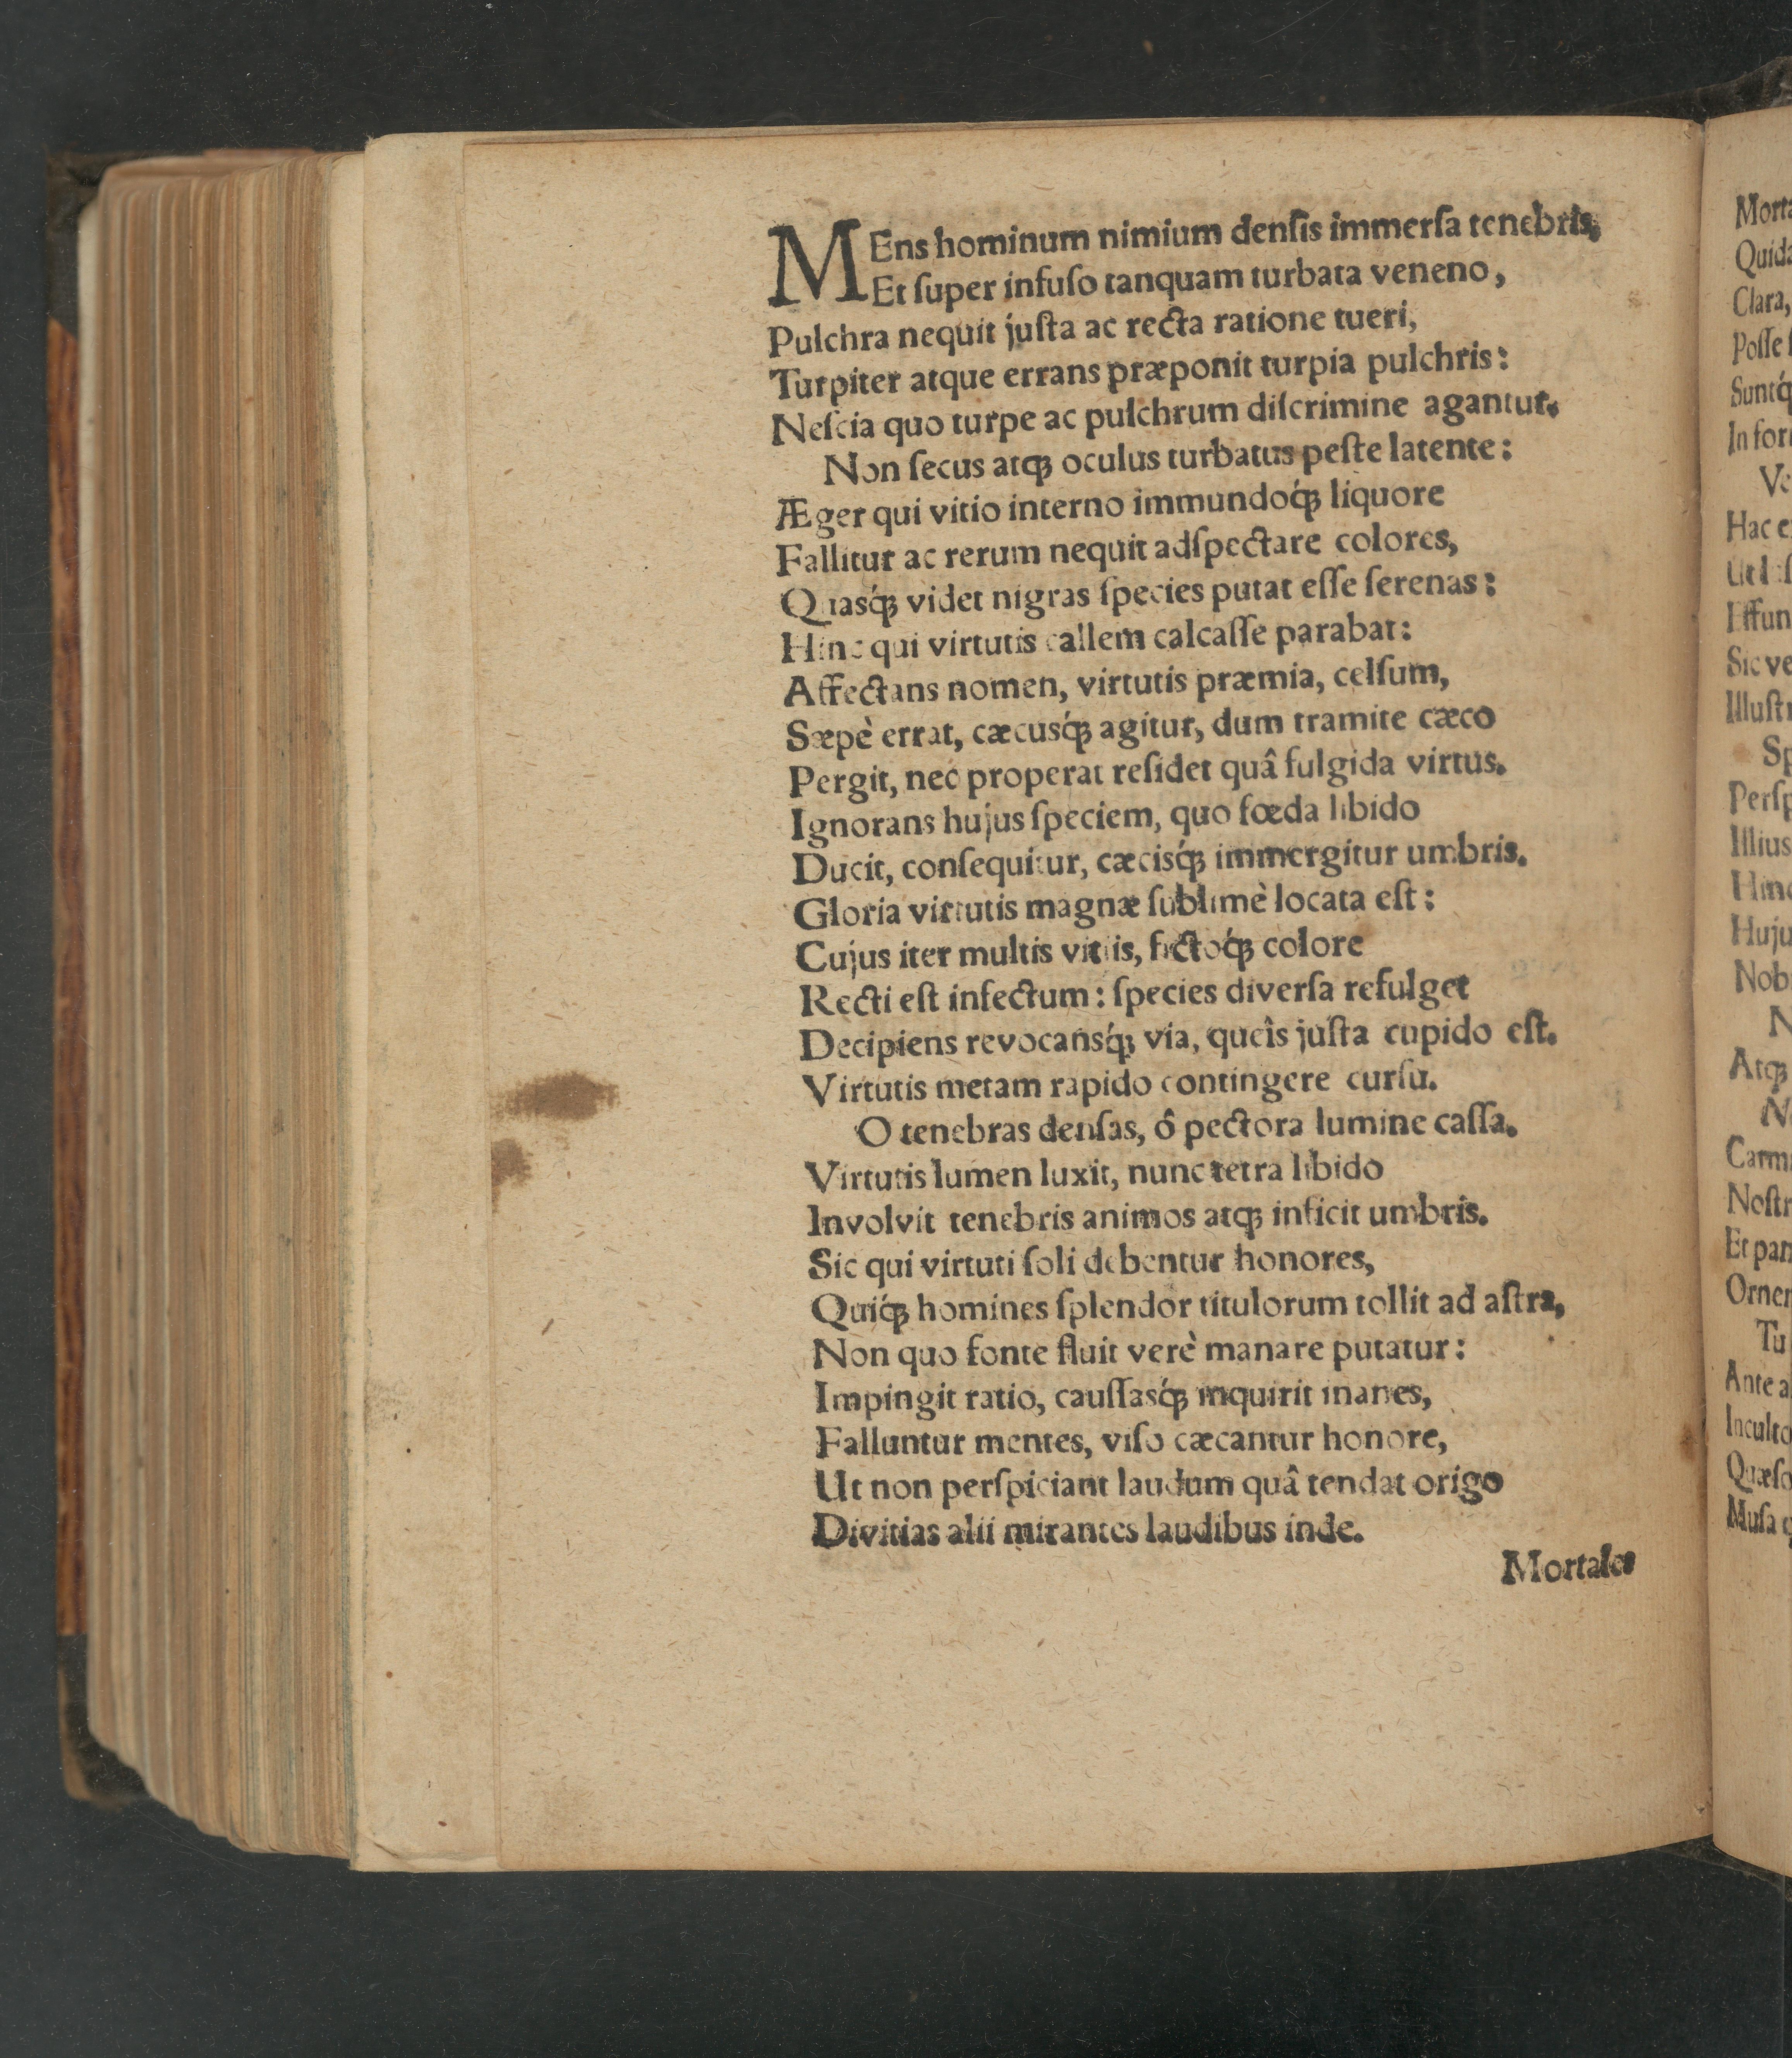 MEns hominum nimium denſis immerſa tenebris,
Et ſuper infuſo tanquam turbata veneno,
Pulchra nequit juſta ac recta ratione tueri,
Turpiter atque errans præponit turpia pulchris:
Neſcia quo turpe ac pulchrum diſcrimine agantur.
Non ſecus atq́ꝫ oculus turbatus peſte latente:
Æger qui vitio interno immundoq́ꝫ liquore
Fallitur ac rerum nequit adſpectare colores,
Quasq́ꝫ videt nigras ſpecies putat eſſe ſerenas:
Hinc qui virtutis callem calcaſſe parabat:
Affectans nomen, virtutis præmia, celſum,
Sæpè errat, cæcusq́ꝫ agitur, dum tramite cæco
Pergit, nec properat reſidet quâ fulgida virtus.
Ignorans hujus ſpeciem, quo fœda libido
Ducit, conſequitur, cæcisq́ꝫ immergitur umbris.
Gloria virtutis magnæ ſublimè locata eſt:
Cujus iter multis vitiis, fictoq́ꝫ colore
Recti eſt infectum: ſpecies diverſa refulget
Decipiens revocansq́ꝫ via, queîs juſta cupido eſt.
Virtutis metam rapido contingere curſu.
O tenebras denſas, ô pectora lumine caſſa.
Virtutis lumen luxit, nunc tetra libido
Involvit tenebris animos atqꝫ inficit umbris.
Sic qui virtuti ſoli debentur honores,
Quiq́ꝫ homines ſplendor titulorum tollit ad aſtra,
Non quo fonte fluit verè manare putatur:
Impingit ratio, cauſſasq́ꝫ inquirit inanes,
Falluntur mentes, viſo cæcantur honore,
Ut non perſpiciant laudum quâ tendat origo
Divitias alii mirantes laudibus inde.
Mortales
Quid
Clara,
Poſſe
Suntq́
In for
Ve
Hac e
Effun
Sic ve
Illuſt
Sp
Perſp
Illius
Hinc
Huju
Nob
N
Atqꝫ
N
Carm
Noſtr
Et pan
Orner
Tu
Ante a
Inculto
Quæſo
Muſa